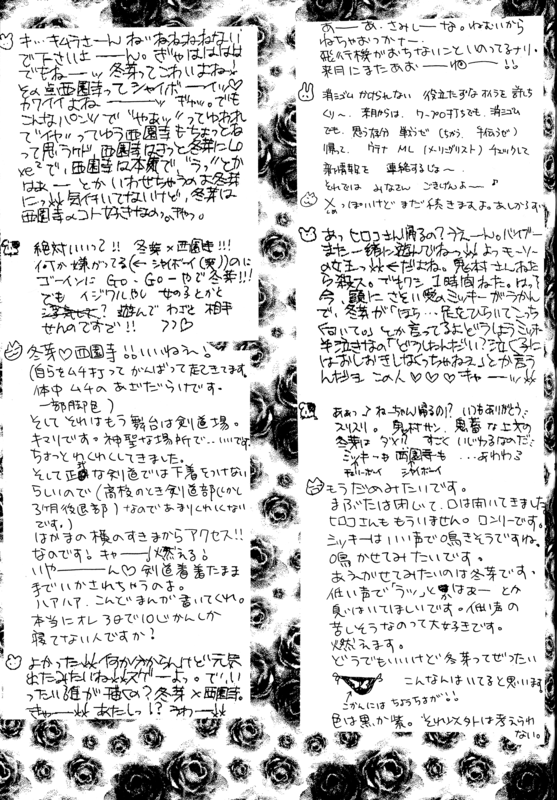 キ…キムラさーん ねいねねねねない
で下さいよーーん。ぎゃはははは
でもねーーッ 冬芽ってこわいよね!
その点西園寺ってシャイボーイッ♡
カワイイよねーー ぎゃッ。でも
こんなパンツ で"やぁッ"ってゆわれ
て"イヤ"ってゆう西園寺もちょっとね
って思うケド、西園寺はきっと冬芽にLo
ve²で、西園寺は本編で、"うっ"とか
はぁーーとかいわせちゃうのお冬芽
にっ 気付いてないけど、冬芽は
西園寺のコト好きなのっ。きゃっ。
絶対いいって!! 冬芽×西園寺!!!
イヤか嫌がってる(←シャイボーイ(笑))のに
ゴーインに Go、Go-やで冬芽!!!
でも イジワルやし 女の子とかと
遊んで わざと 相手
せんのですで!!
冬芽♡西園寺!!いいねぇ〜!
(自らをムチ打って がんばって起きてます。
体中 ムチの あざだらけです。
一部脚色)
そして それはもう舞台は剣道場。
キマリです。神聖な場所で…いいです。
ちょっとわくわくしてきました。
そして正式な剣道では下着をつけない
らしいので(高校のとき剣道部(しかし
3ヶ月後退部)なのであまりくわしくない
です。)
はかまの横のすきまからアクセス!!
なのです! キャーー!燃える!
いやーーーん♡ 剣道着着たまま
までいかされちゃうのよ。
ハアハア、こんどまんが書いてくれ。
本当にオレ3日で10じかんしか
寝てない人ですか?
よかった 何か分からんけど元気
出たみたいね スゲーーよっ。で、い
ったい誰が描くの? 冬芽×西園寺。
きゅーー あたしっ!? うわーっ
あーーあ、さみしーーな。ねむいから
ねちゃおうかナー
飛行機がおちないこといのってるナリ。
来月にまたあおーーね!!
消しゴムかけらんない 役立たずなオレを許ち
くりー。来月からは、ワープロ打ちでも、消しゴム
でも、思う存分 使うぜ(ちがう、手伝うぜ)
帰って、ウテナ ML(メーリングリスト)チェックして
新情報を 連絡するじょー。
それでは みなさん ごきげんよー♪
〆っぽいけど まだ続きますよ。あしからず
あっヒロコさん帰るの?うえーん。バイブー
また一緒に遊んでねっ よっモーソー
の女王っ だよね。鬼村さんねた
ら殺ス。でキリン1時間ねた。はっ?
今、頭にさとい兜のミッキーがうかん
で、冬芽が「ほら…足をひらいてこっち
向いて。」とか言ってるよどうしようミッキー
半泣きなの「どうしたんだい?泣く子に
はおしおきしなくっちゃねぇ」とか言う
んだヨ この人♡♡♡キャーーッ
ああっ♪ねーちゃん帰るの!? いつもありがとう。
スリスリ。鬼村サン、鬼畜な上大の
冬芽は タイド!? すごくいいわるなのだ
ミッキーも西園寺も …あわわる
チェリーボーイ シャイボーイ
もうだめみたいです。
まぶたは閉じて、口は開いてきました
ヒロコさんももういません。ロンリーです。
ミッキーはいい声で鳴きそうですね。
鳴かせてみたいです。
あえがせてみたいのは冬芽です。
低い声で「ウッ」とはぁーー とか
息はいてほしいです。低い声の
苦しそうなのって大好きです。
燃えます。
どうでもいいけど 冬芽ってぜったい
こんなんはいてると思います
こかんにはちょうちょが!!
色は黒か紫。それ以外は考えられ
ない。